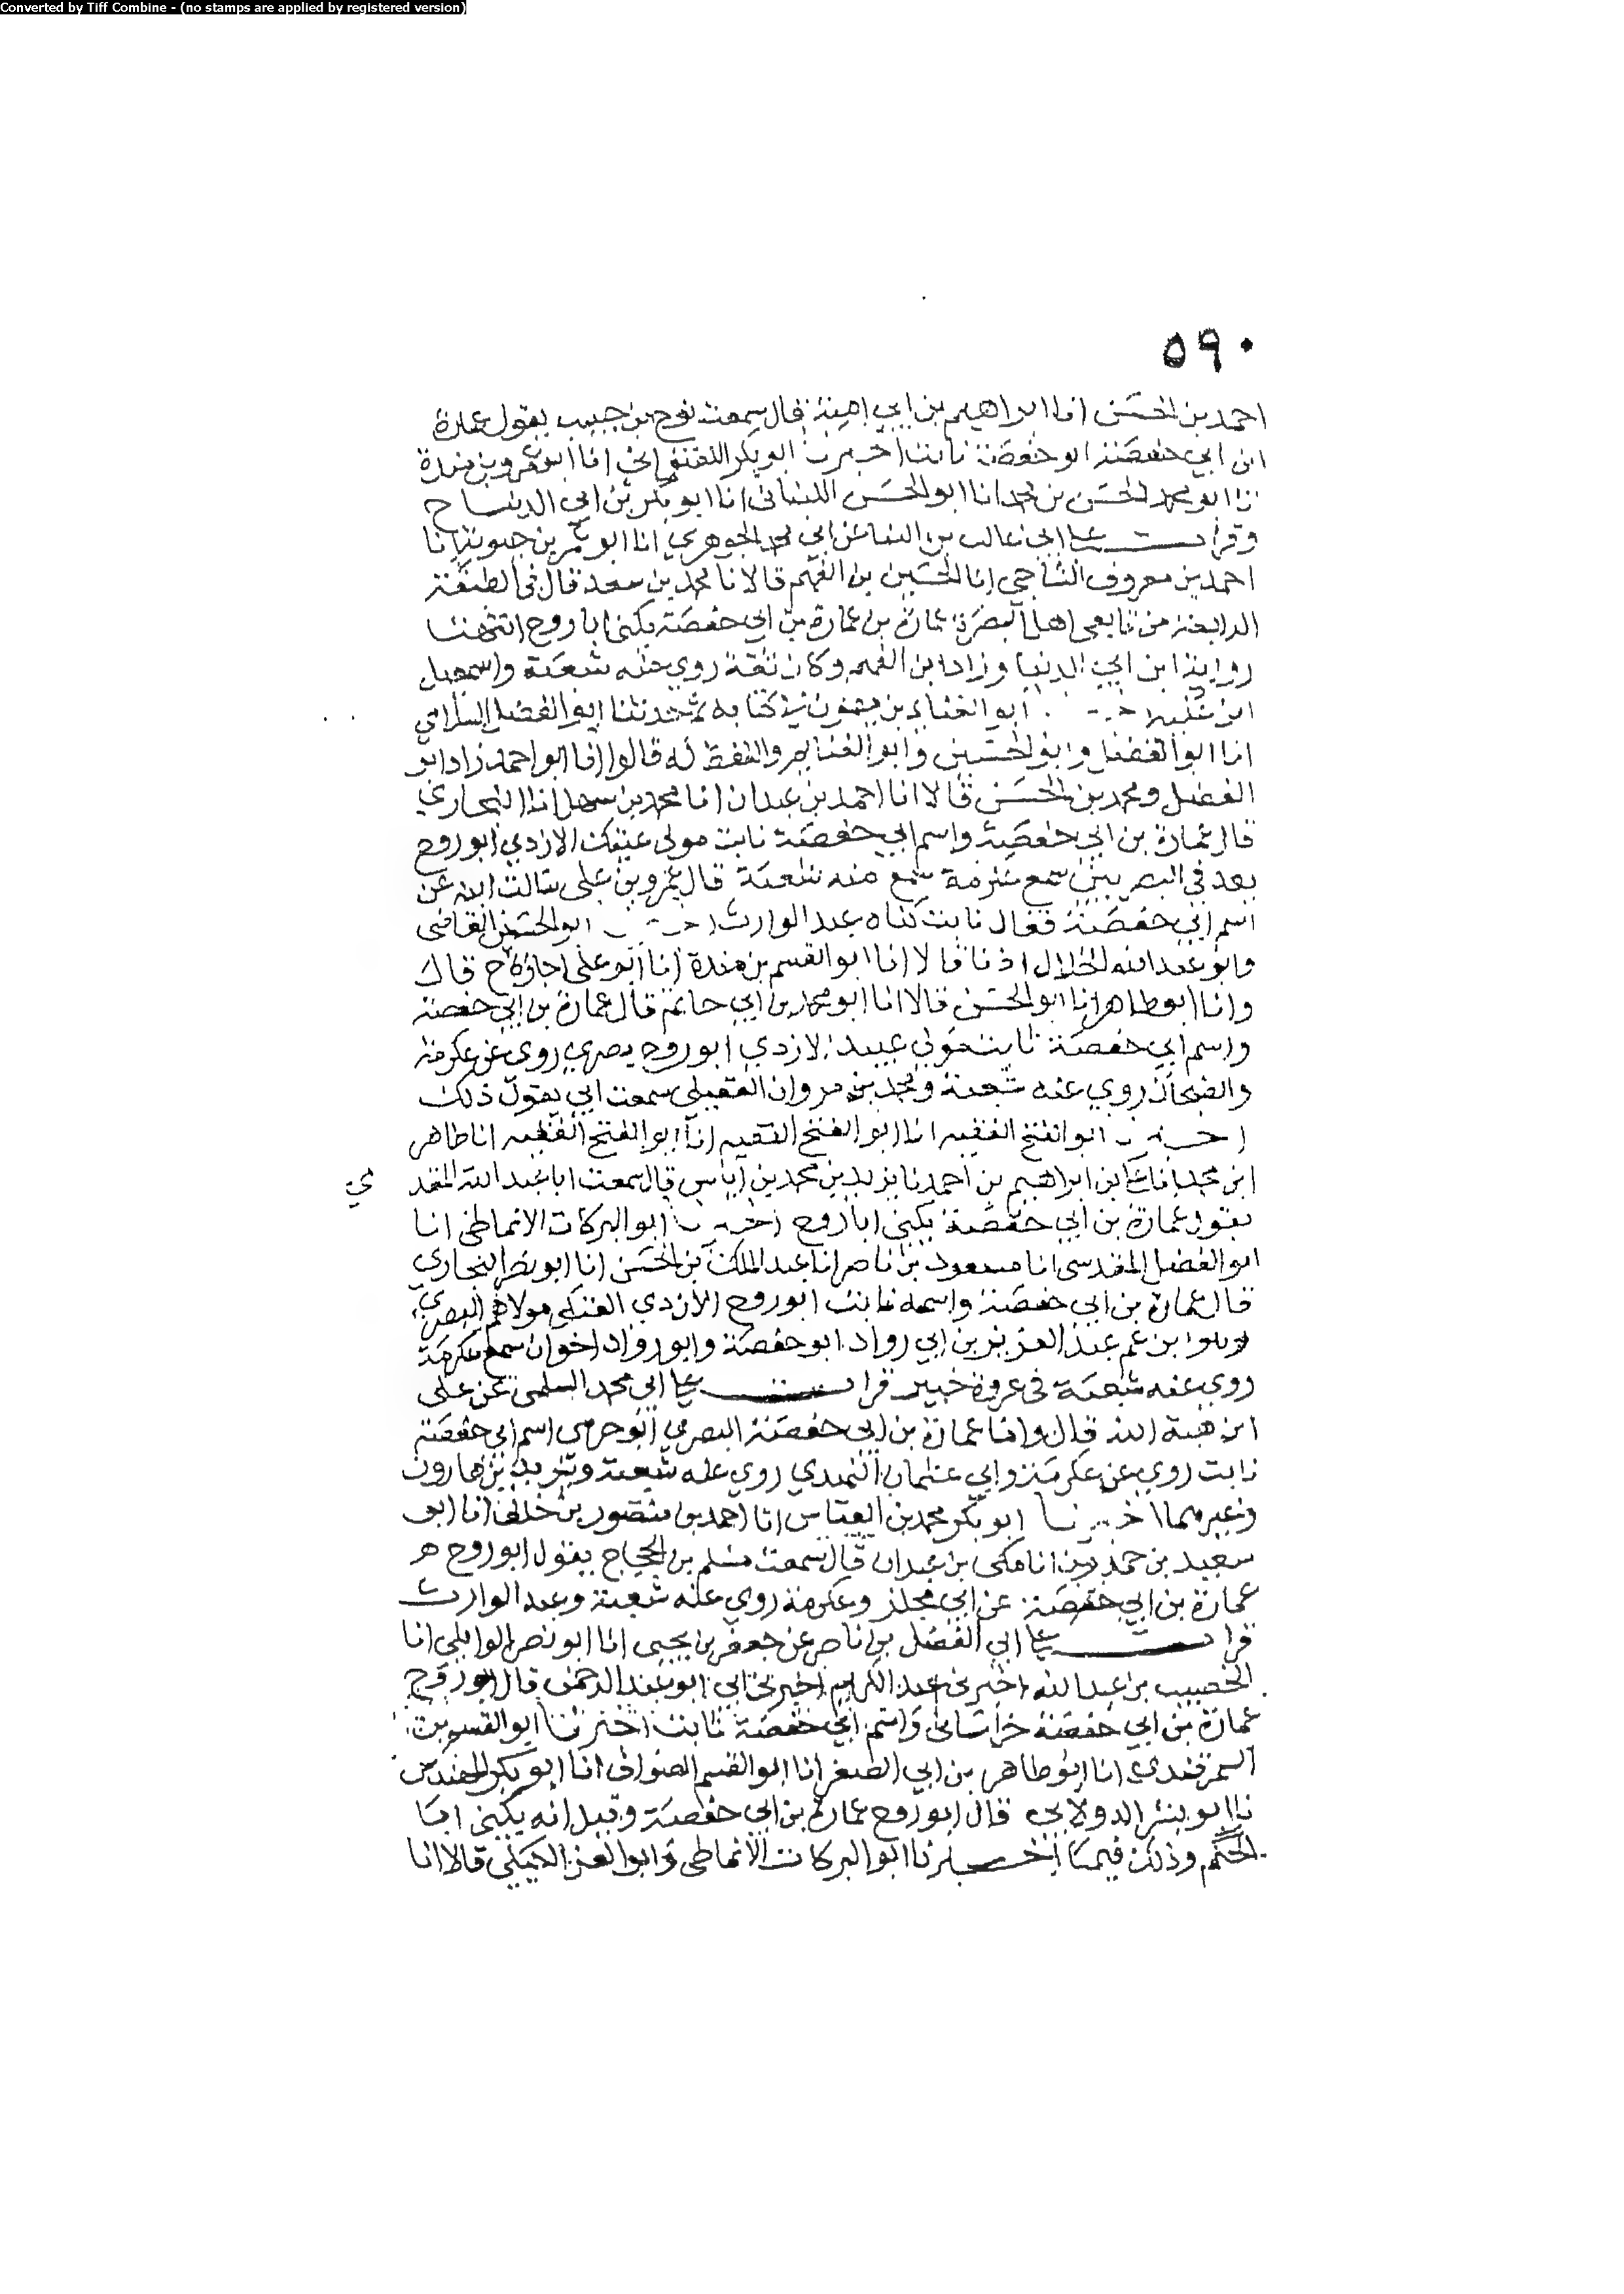 Converted by Tiff Combine - (no stamps are applied by registered version)
٥٩٠
احمد بن الحسن انا ابراهيم بن ابي امية قال سمعت نوح بن حبيب يقول عمارة
ابن ابي حفصة ابو حفصة ثابت اخبرنا ابو بكر اللفتواني انا ابو عمرو بن مندة
انا ابو محمد الحسن بن محمد انا ابو الحسن اللنباني انا ابو بكر بن ابي الدنيا ح
وقرات على ابي غالب بن البنا عن ابي محمد الجوهري انا ابو عمر بن حيوية انا
احمد بن معروف انا الحسين بن الفهم قالا نا محمد بن سعد قال في الطبقة
الرابعة من تابعي اهل البصرة عمارة بن عمارة بن ابي حفصة يكنى ابا روح انتهت
رواية ابن ابي الدنيا وزاد ابن الفهم وكان ثقة روى عنه شعبة واسمعيل
ابن علية ابو الغنائم بن ميمون في كتابه ثم حدثنا ابو الفضل السلامي
انا ابو الفضل وابو الحسين وابو الغنايم واللفظ له قالوا انا ابو احمد زاد ابو
الفضل ومحمد بن الحسن قالا انا احمد بن عبدان انا محمد بن سهل انا البخاري
قال عمارة بن ابي حفصة واسم ابي حفصة ثابت مولى عتيك الازدي ابو روح
يعد في البصريين سمع عكرمة سمع منه شعبة قال عمرو بن علي سالت ابنه عن
اسم ابي حفصة فقال ثابت كناه عبد الوارث ابو الحسن القاضي
وابو عبد الله الخلال اذنا قالا انا ابو القسم بن مندة انا ابو علي اجازة ح قال
وانا ابو طاهر انا ابو الحسن قالا انا ابو محمد بن ابي حاتم قال عمارة بن ابي حفصة
واسم ابي حفصة ثابت مولى عبيد الازدي ابو روح بصري روى عن عكرمة
والضحاك روى عنه شعبة ومحمد بن مروان العقيلي سمعت ابي يقول ذلك
ابو الفتح الفقيه انا ابو الفتح الفقيه انا ابو الفتح الفقيه انا طاهر
ابن محمد انا علي ابن ابراهيم بن احمد نا يزيد بن محمد بن اياس قال سمعت ابا عبد الله المقدمي
يقول عمارة بن ابي حفصة يكنى ابا روح ابو البركات الانماطي انا
ابو الفضل المقدسي انا مسعود بن ناصر انا عبد الملك بن الحسن انا ابو نصر البخاري
قال عمارة بن ابي حفصة واسمه ثابت ابو روح الازدي العتكي مولاهم البصري
وهو ابن عم عبد العزيز بن ابي رواد ابو حفصة وابو رواد اخوان سمع عكرمة
روى عنه شعبة في غزوة خيبر قرات على ابي محمد السلمي عن علي
ابن هبة الله قال واما عمارة بن ابي حفصة البصري ابو حرمي اسم ابي حفصة
ثابت روى عن عكرمة وابي عثمان النهدي روى عنه شعبة ويزيد بن هارون
وغيرهما اخبرنا ابو بكر محمد بن العباس انا احمد بن منصور بن خلف انا ابو
سعيد بن حمدون انا مكي بن عبدان قال سمعت مسلم بن الحجاج يقول ابو روح
عمارة بن ابي حفصة عن ابي مجلز وعكرمة روى عنه شعبة وعبد الوارث
قرات على ابي الفضل بن ناصر عن جعفر بن يحيى انا ابو نصر الوايلي انا
الخصيب بن عبد الله اخبرني عبد الكريم اخبرني ابي ابو عبد الرحمن قال ابو روح
عمارة بن ابي حفصة خراساني واسم ابي حفصة ثابت اخبرنا ابو القسم بن
السمرقندي انا ابو طاهر بن ابي الصقر انا ابو القسم الصواف انا ابو بكر المهندس
نا ابو بشر الدولابي قال ابو روح عمارة بن ابي حفصة وقيل انه يكنى ابا
الحكم وذلك فيما اخبرنا ابو البركات الانماطي وابو العز الكيلي قالا انا